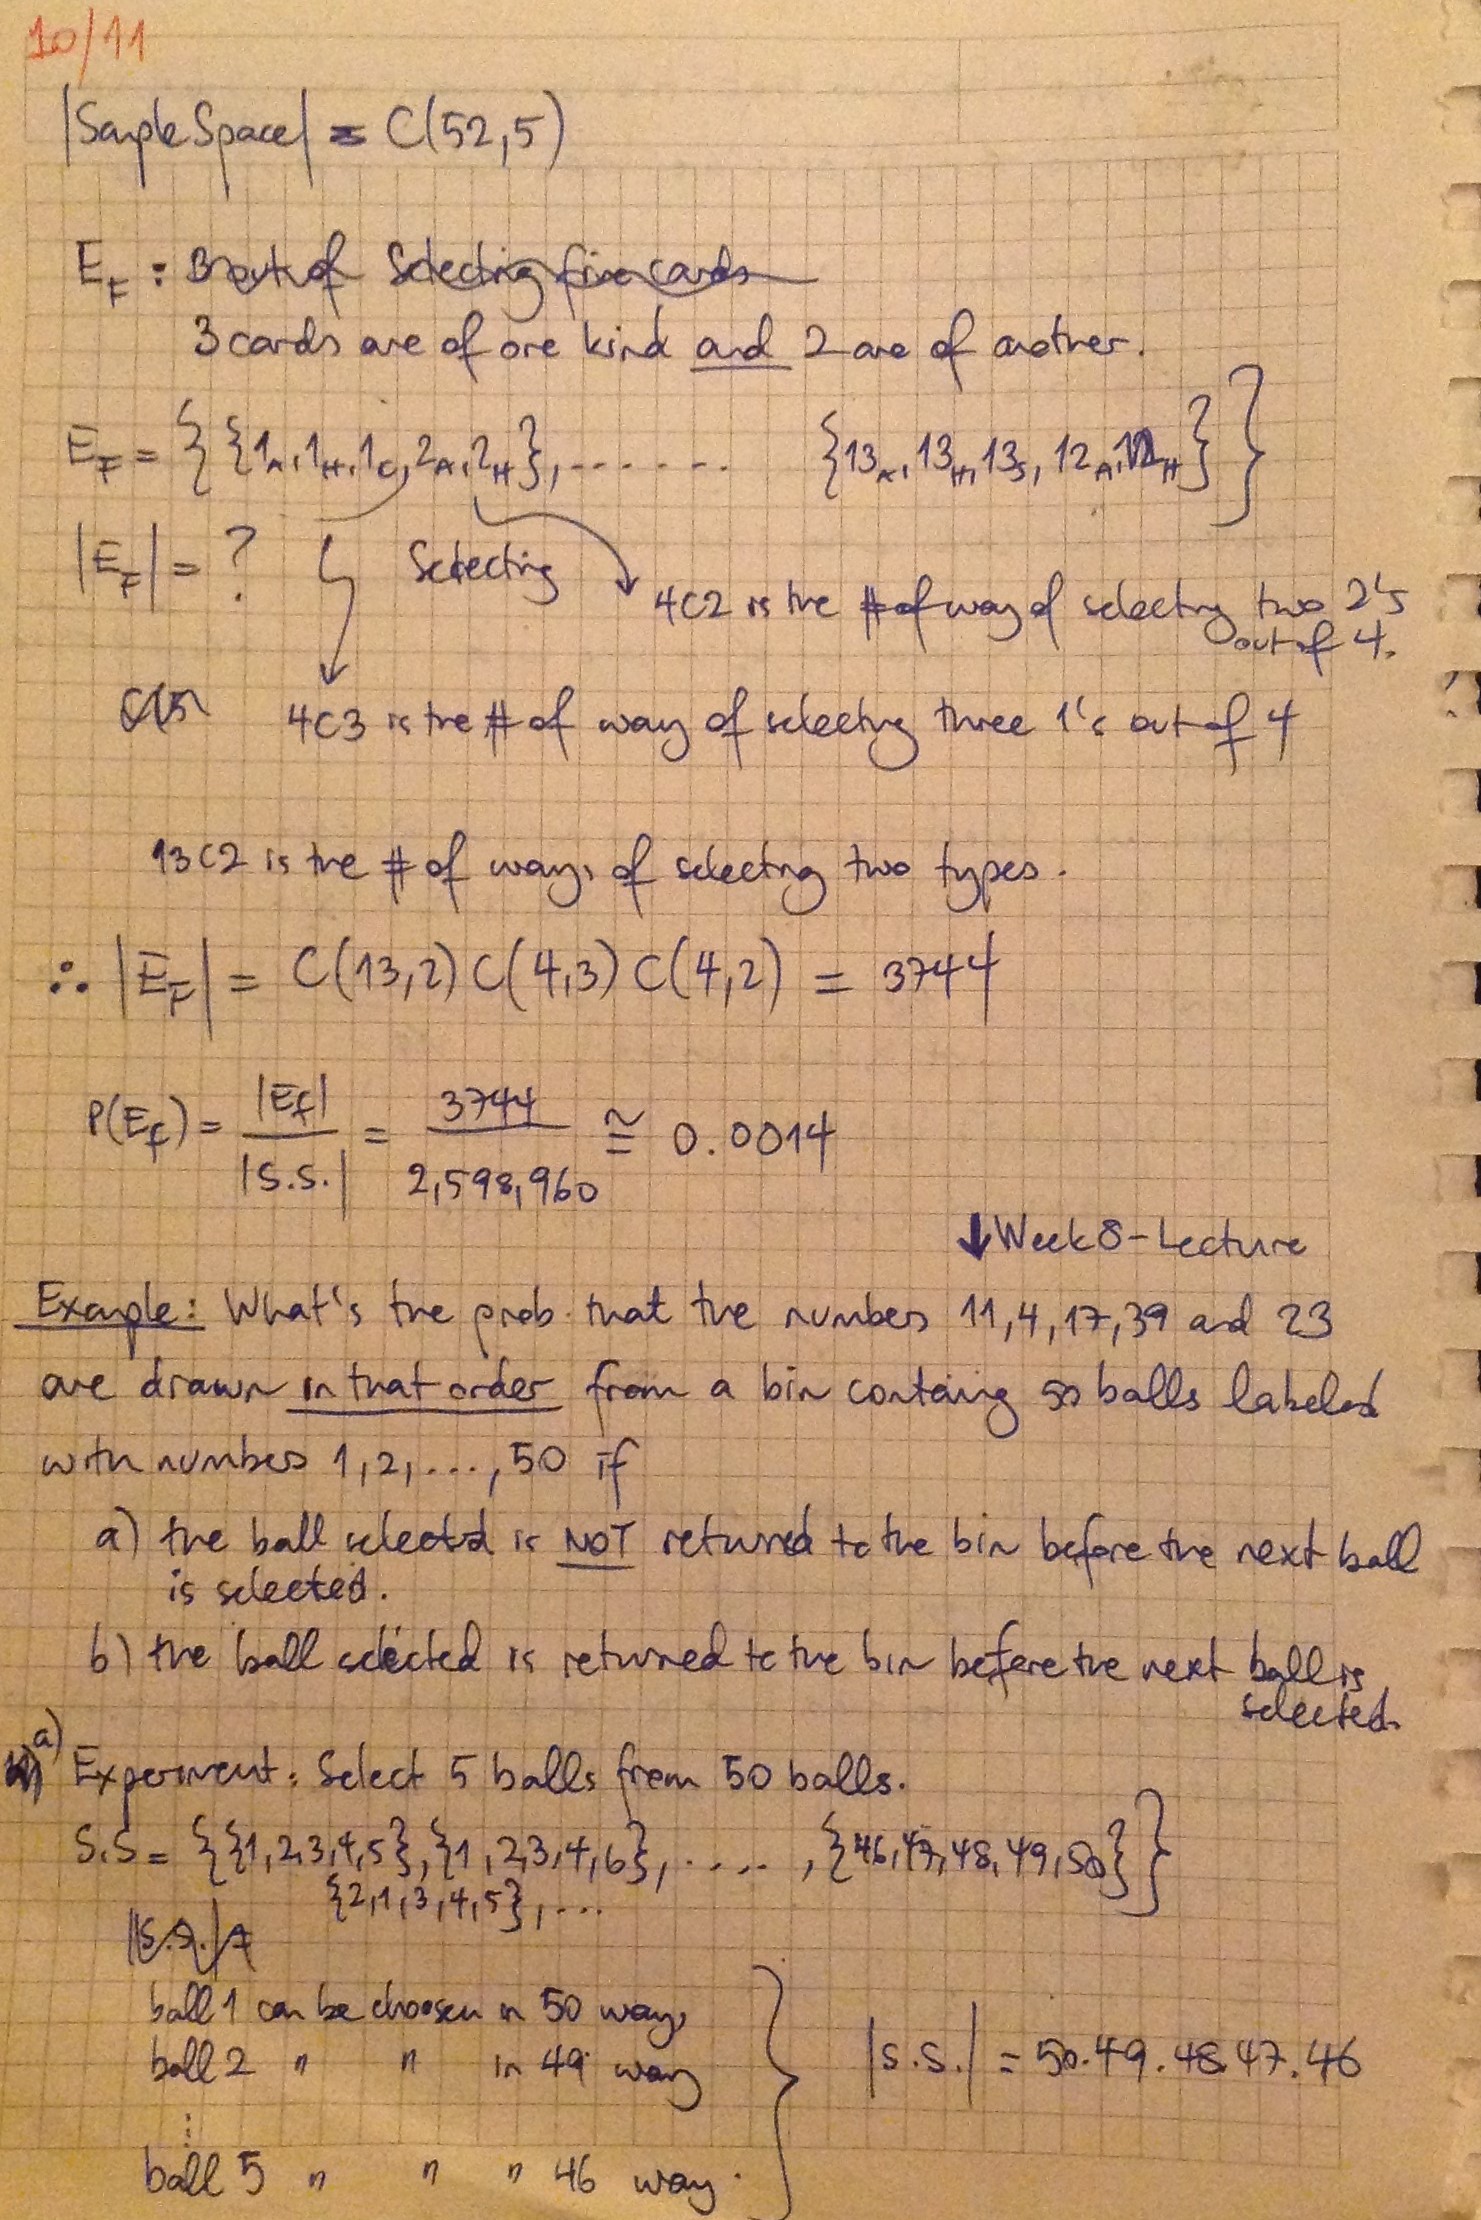 10/11
|Sample Space| = C(52,5)
E_F : Event of Selecting five cards
3 cards are of one kind and 2 are of another.
E_F = { {1_A, 1_H, 1_C, 2_A, 2_H}, ....... {13_A, 13_H, 13_S, 12_A, 12_H} }
|E_F| = ? Selecting
4C2 is the # of way of selecting two 2's
out of 4.
4C3 is the # of way of selecting three 1's out of 4
13C2 is the # of ways of selecting two types.
∴ |E_F| = C(13,2) C(4,3) C(4,2) = 3744
P(E_f) = |E_f| / |S.S.| = 3744 / 2,598,960 ≅ 0.0014
↓ Week 8 - Lecture
Example: What's the prob. that the numbers 11, 4, 17, 39 and 23
are drawn in that order from a bin containg 50 balls labeled
with numbers 1, 2, ..., 50 if
a) the ball selected is NOT returned to the bin before the next ball
is selected.
b) the ball selected is returned to the bin before the next ball is
selected.
a) Experiment: Select 5 balls from 50 balls.
S.S = { {1,2,3,4,5}, {1,2,3,4,6}, ....., {46,47,48,49,50} }
{2,1,3,4,5}, ...
|S.S.| =
ball 1 can be choosen in 50 ways
ball 2 " " in 49 way
⋮
ball 5 " " " 46 way.
|S.S.| = 50.49.48.47.46